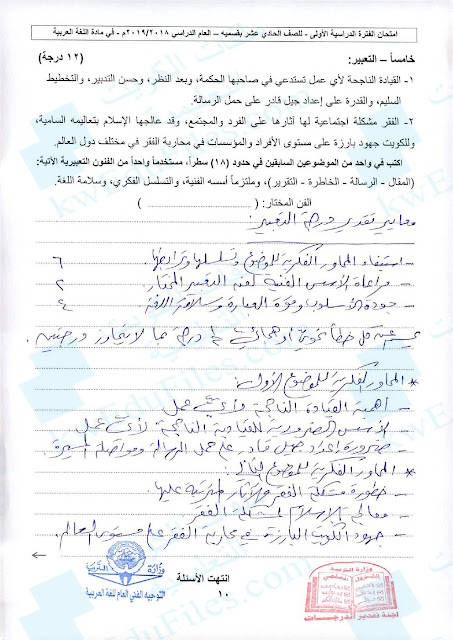 امتحان الفترة الدراسية الأولى - للصف الحادي عشر بقسميه – العام الدراسي ٢٠١٩/٢٠١٨م - في مادة اللغة العربية
خامساً – التعبير: (١٢ درجة)
١- القيادة الناجحة لأي عمل تستدعي في صاحبها الحكمة، وبعد النظر، وحسن التدبير، والتخطيط
السليم، والقدرة على إعداد جيل قادر على حمل الرسالة.
٢- الفقر مشكلة اجتماعية لها آثارها على الفرد والمجتمع، وقد عالجها الإسلام بتعاليمه السامية،
وللكويت جهود بارزة على مستوى الأفراد والمؤسسات في محاربة الفقر في مختلف دول العالم.
اكتب في واحد من الموضوعين السابقين في حدود (١٨) سطراً، مستخدماً واحداً من الفنون التعبيرية الآتية:
(المقال - الرسالة - الخاطرة - التقرير)، وملتزماً أسسه الفنية، والتسلسل الفكري، وسلامة اللغة.
الفن المختار: ( )
معايير تقدير درجة التعبير:
- استيفاء المحاور الفكرية للموضوع وتسلسلها وترابطها. ٦
- مراعاة الأسس الفنية لفن التعبير المختار. ٢
- جودة الأسلوب وقوة العبارة وسلامة اللغة. ٤
عن كل خطأ نحوي أو هجائي ½ درجة بما لا يتجاوز درجتين.
* المحاور الفكرية للموضوع الأول:
- أهمية القيادة الناجحة لأي عمل
- الأسس الضرورية للقيادة الناجحة لأي عمل
- ضرورة إعداد جيل قادر على حمل الرسالة ومواصلة المسيرة.
* المحاور الفكرية للموضوع الثاني:
- خطورة مشكلة الفقر والآثار المترتبة عليها.
- معالجة الإسلام لمشكلة الفقر
- جهود الكويت البارزة في محاربة الفقر على مستوى العالم.
انتهت الأسئلة
١٠
وزارة التربية
التوجيه الفني العام للغة العربية
وزارة التربية
لجنة تقدير الدرجات